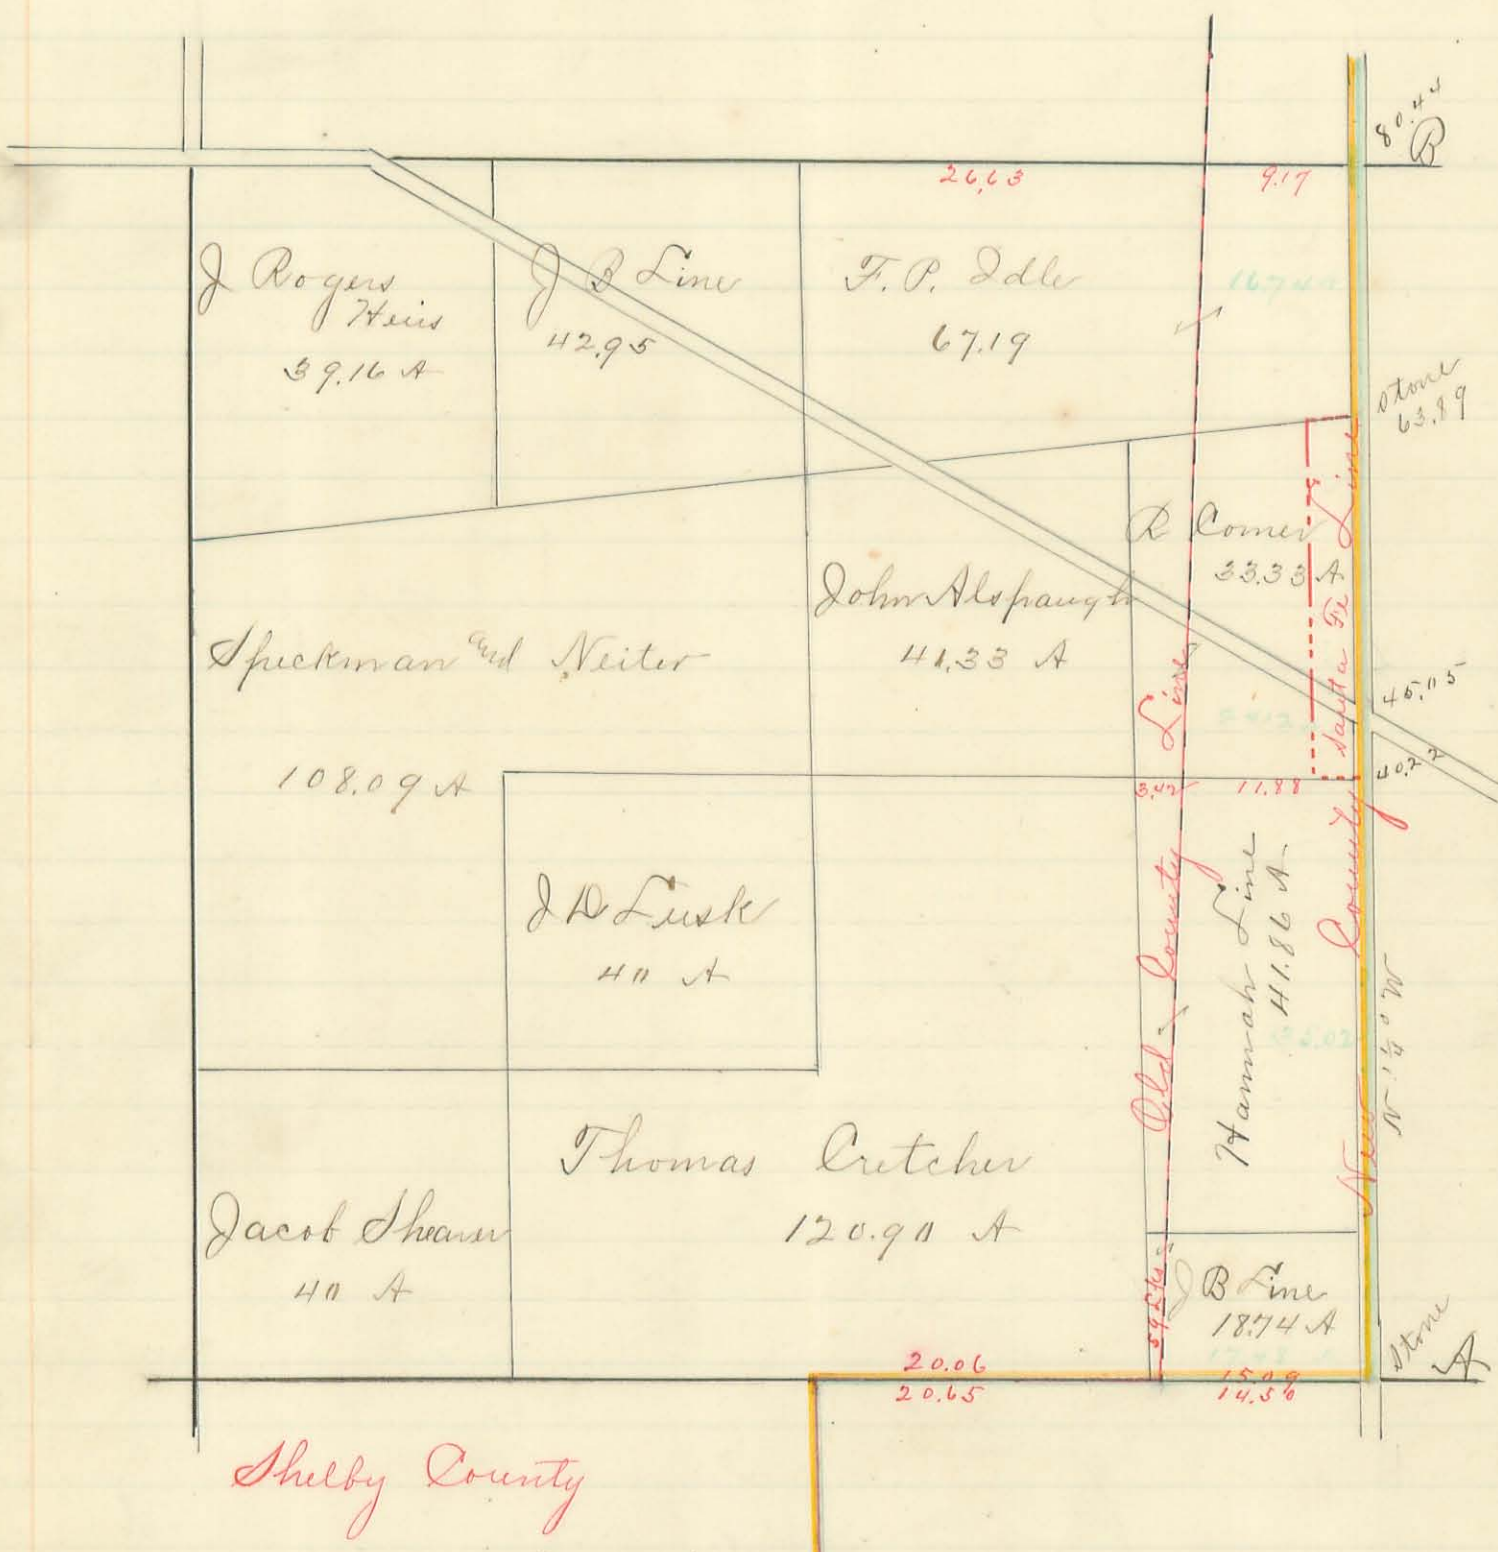 80.44
B
26.63
9.17
J Rogers
Heirs
39.16 A
J B Line
42.95
F. P. Idle
67.19
Stone
63.89
R Comer
33.33 A
John Alspaugh
41.33 A
Speckman and Neiter
108.09 A
Santa Fe Line
45.05
40.22
3.42
11.88
J D Lusk
40 A
Old County Line
Hannah Line
41.86 A
New County Line
Thomas Cretcher
120.90 A
Jacob Shearer
40 A
J B Line
18.74 A
59 Lks
Stone
A
20.06
20.65
15.09
14.50
Shelby County